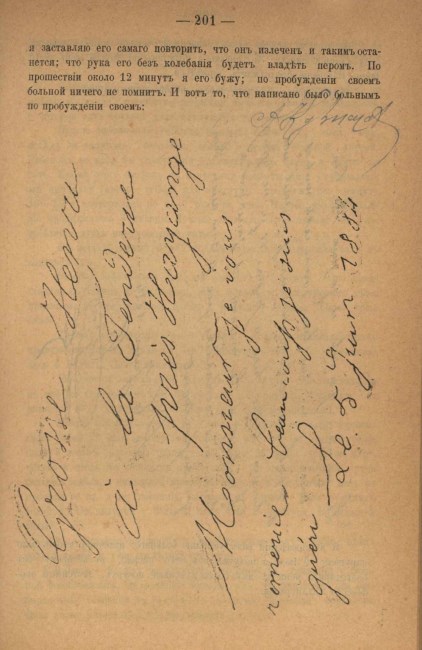 — 201 —
я заставляю его самаго повторить, что онъ излеченъ и такимъ оста-
нется; что рука его безъ колебанія будетъ владѣть перомъ. По
прошествіи около 12 минутъ я его бужу; по пробужденіи своемъ
больной ничего не помнитъ. И вотъ то, что написано было больнымъ
по пробужденіи своемъ:
Grosse Henri
à la Fenderie
près Hayange
Monsieur je vous
remercie beaucoup je suis
guéri Le 5 juin 1884